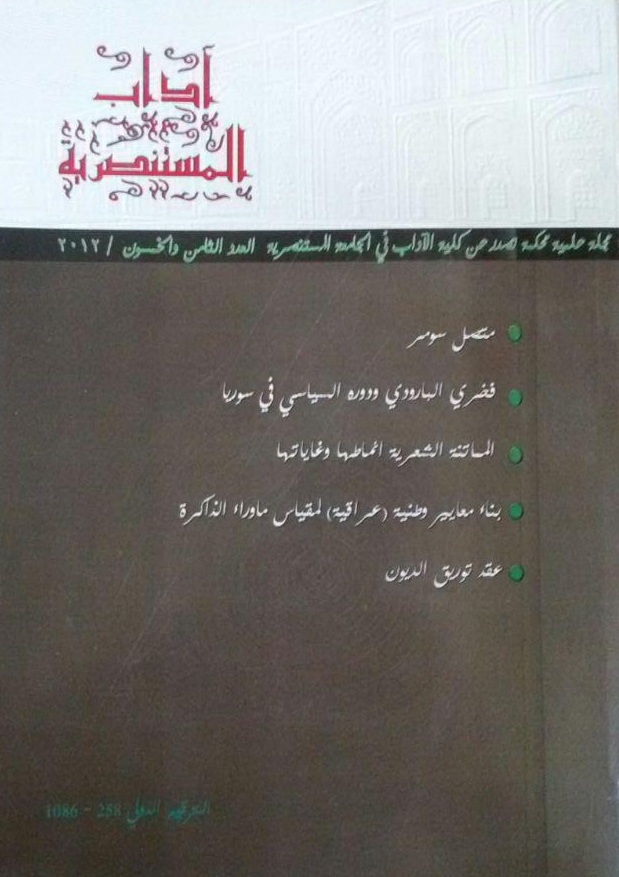 آداب
المستنصرية
مجلة علمية محكمة تصدر عن كلية الآداب في الجامعة المستنصرية العدد الثامن والخمسون / ٢٠١٢
متصل سومر
فخري البارودي ودوره السياسي في سوريا
الماتنة الشعرية انماطها وغاياتها
بناء معايير وطنية (عراقية) لمقياس ماوراء الذاكرة
عقد توريق الديون
الترقيم الدولي 258 - 1086